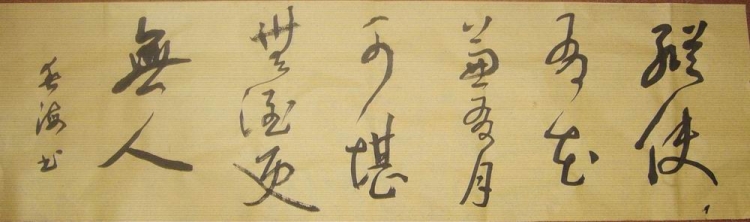 縱使
有花
兼有月
可堪
無酒更
無人
海書